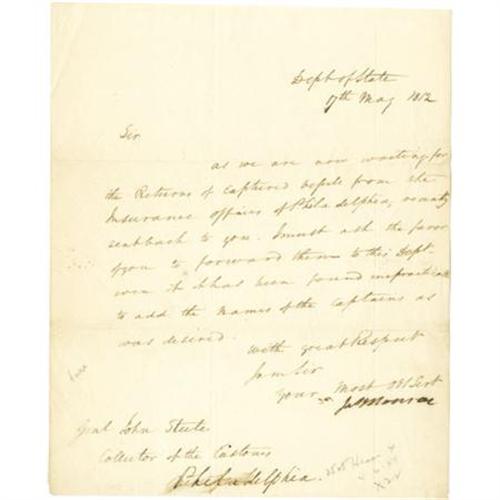 Dept of State
17th May 1812
Sir
as we are now waiting for
the Returns of captured vessels from the
Insurance offices of Philadelphia,
sent back to you. I must ask the favor
of you to forward them to this Dept.
even if it has been found impracticable
to add the names of the Captains as
was desired.
with great Respect
I am Sir
your most Obt Servt
Jas Monroe
Genl John Steele
Collector of the Customs
Philadelphia.